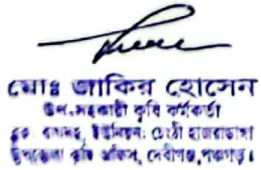 মোঃ জাকির হোসেন
উপ-সহকারী কৃষি কর্মকর্তা
ব্লকঃ ইউনিয়ন: চেংঠী হাজরাডাঙ্গা
উপজেলা কৃষি অফিস, দেবীগঞ্জ, পঞ্চগড়।